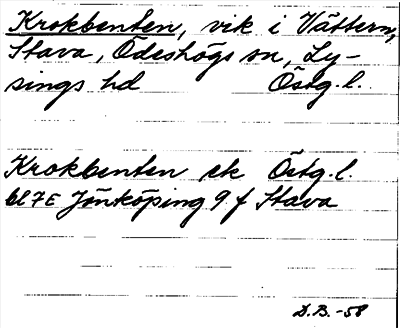 Krokbenten, vik i Vättern,
Stava, Ödeshögs sn, Ly-
sings hd Östg.l.
Krokbenten ek Östg.l.
bl 7E Jönköping 9 f Stava
D.B.-58